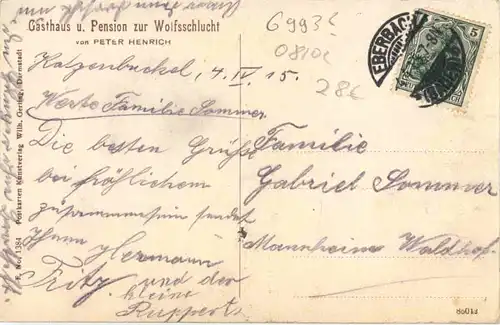 Gasthaus u. Pension zur Wolfsschlucht
von PETER HENRICH
Katzenbuckel, 4. IV. 15.
Werte Familie Sommer
Die besten Grüsse
bei fröhlichem
zusammensein sendet
Ihnen Hermann
Fritz und der
kleine
Ruppert
Familie
Gabriel Sommer
Mannheim Waldhof
6993
0810c
28€
EBERBACH
(BADEN)
5
F. No. 1384 Postkarten Kunstverlag Wilh. Gerling, Darmstadt
86042